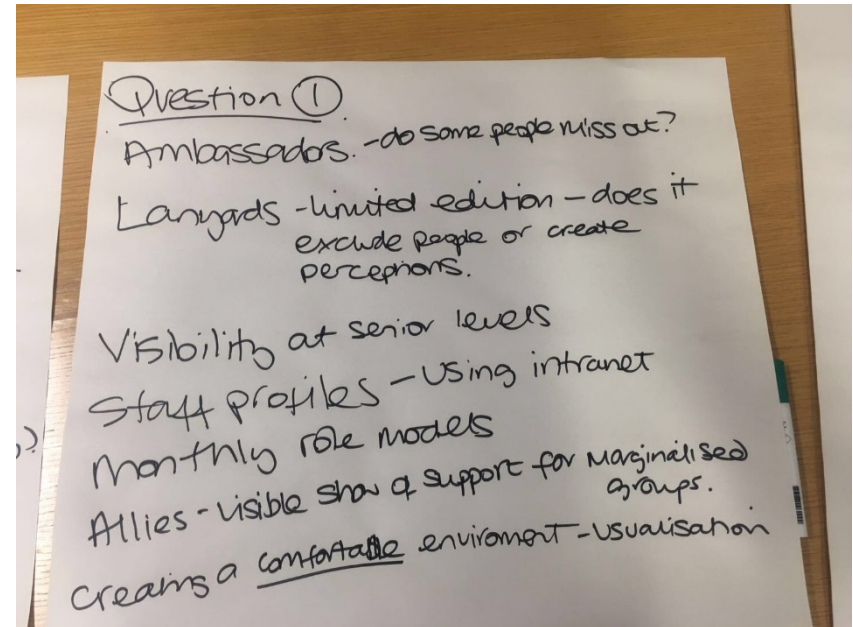 Question 1
Ambassadors. - do some people miss out?
Lanyards - limited edition - does it
exclude people or create
perceptions.
Visibility at senior levels
Staff profiles - using intranet
Monthly role models
Allies - visible show of support for marginalised
groups.
Creating a comfortable enviroment - usualisation